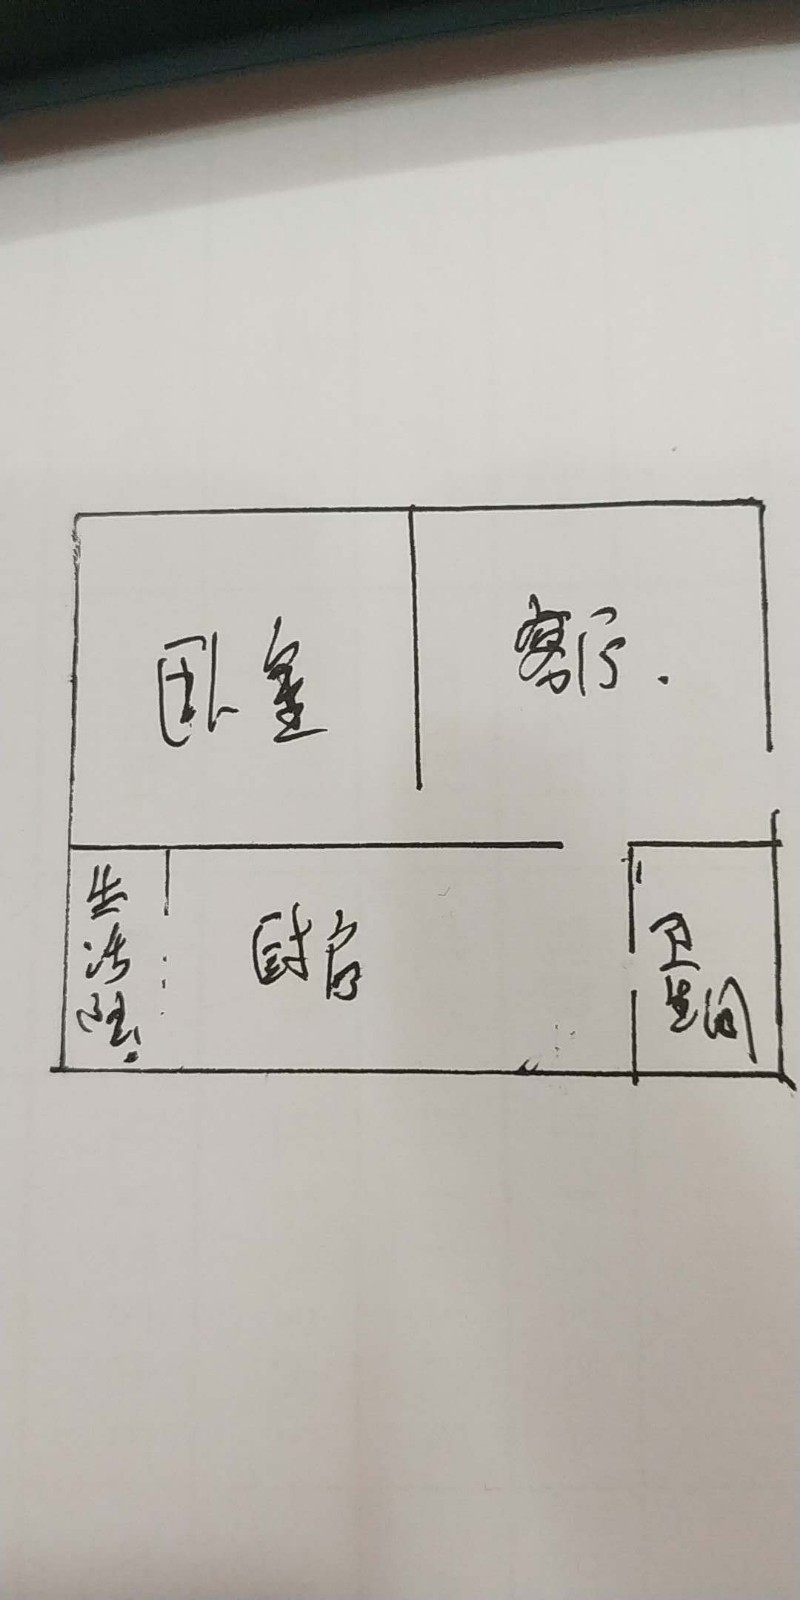 卧室
客厅.
生活阳
厨房
卫生间